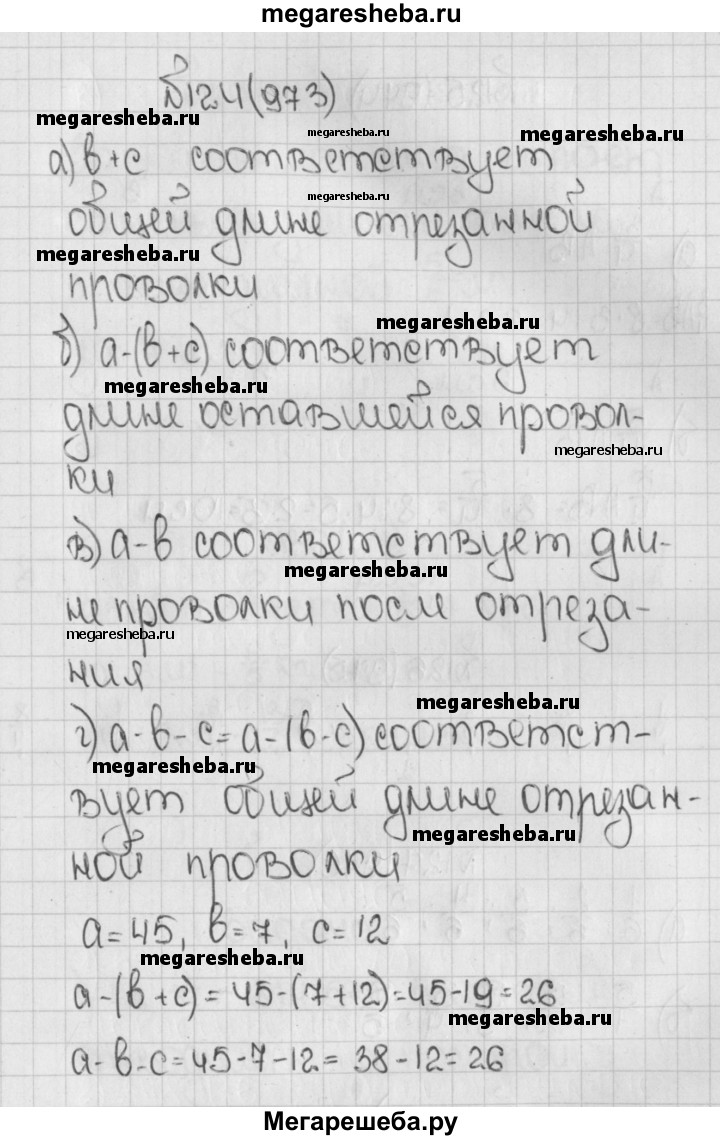 megaresheba.ru
№124(973)
megaresheba.ru megaresheba.ru megaresheba.ru
а) b+c соответствует
megaresheba.ru
общей длине отрезанной
megaresheba.ru
проволки
megaresheba.ru
б) a-(b+c) соответствует
megaresheba.ru
длине оставшейся провол-
megaresheba.ru
ки
в) a-b соответствует дли-
megaresheba.ru
не проволки после отреза-
megaresheba.ru
ния
megaresheba.ru
г) a-b-c=a-(b-c) соответст-
megaresheba.ru
вует общей длине отрезан-
megaresheba.ru
ной проволки
a=45, b=7, c=12
megaresheba.ru
a-(b+c)=45-(7+12)=45-19=26
megaresheba.ru
a-b-c=45-7-12=38-12=26
Мегарешеба.ру